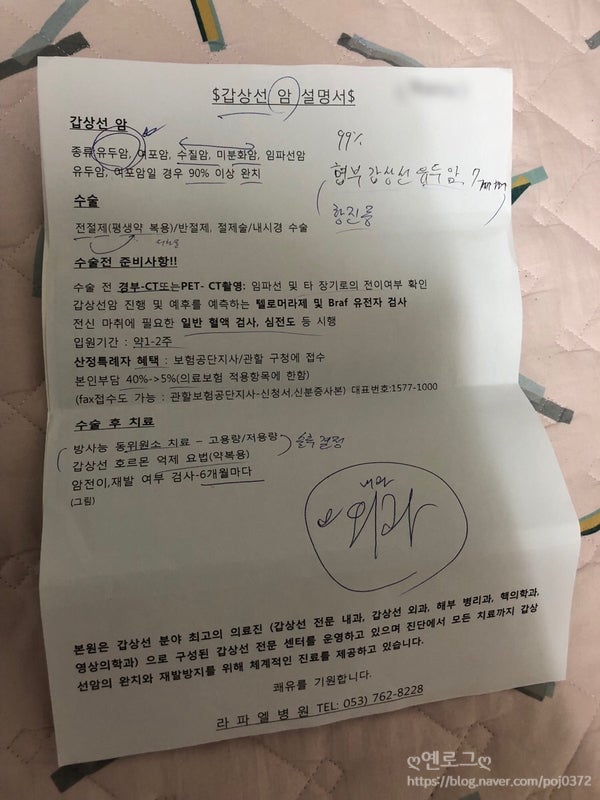 $갑상선 암 설명서$
갑상선 암
99%
종류:유두암, 여포암, 수질암, 미분화암, 임파선암
협부 갑상선 유두암, 7mm
유두암, 여포암일 경우 90% 이상 완치
수술
전절제(평생약 복용)/반절제, 절제술/내시경 수술
수술전 준비사항!!
수술 전 경부-CT또는PET- CT촬영: 임파선 및 타 장기로의 전이여부 확인
갑상선암 진행 및 예후를 예측하는 텔로머라제 및 Braf 유전자 검사
전신 마취에 필요한 일반 혈액 검사, 심전도 등 시행
입원기간 : 약1-2주
산정특례자 혜택 : 보험공단지사/관할 구청에 접수
본인부담 40%->5%(의료보험 적용항목에 한함)
(fax접수도 가능 : 관할보험공단지사-신청서,신분증사본) 대표번호:1577-1000
수술 후 치료
방사능 동위원소 치료 – 고용량/저용량
갑상선 호르몬 억제 요법(약복용)
암전이,재발 여부 검사-6개월마다
(그림)
외과
본원은 갑상선 분야 최고의 의료진 (갑상선 전문 내과, 갑상선 외과, 해부 병리과, 핵의학과,
영상의학과) 으로 구성된 갑상선 전문 센터를 운영하고 있으며 진단에서 모든 치료까지 갑상
선암의 완치와 재발방지를 위해 체계적인 진료를 제공하고 있습니다.
쾌유를 기원합니다.
라 파 엘 병 원 TEL: 053) 762-8228
ღ옌로그ღ
https://blog.naver.com/poj0372